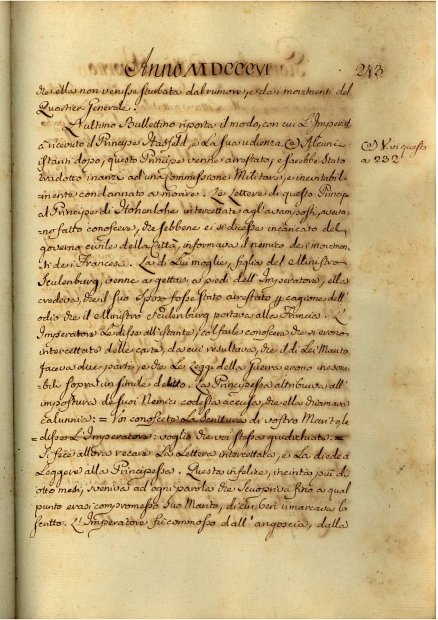 Anno MDCCCVI
243
che ella non venisse turbata dal rumore, e dai movimenti del
Quartier Generale.
L'ultimo Bullettino riporta il modo, con cui l'Imperat.
à ricevuto il Principe Hasfeld, e la sua udienza (a) Alcuni
istanti dopo, questo Principe venne arrestato; e sarebbe stato
tradotto inanzi ad una Commissione Militare, e inevitabil-
=mente condannato a morire. Le Lettere di questo Principe
al Principe di Hohenlohe intercettate agl'avamposti, aveva-
no fatto conoscere, che sebbene ei si dicesse incaricato del
governo civile della Città, informava il nemico de' movimen-
ti de' Francesi. La di Lui moglie, figlia del Ministro
Sculenburg, venne a gettarsi a' piedi dell'Imperatore; ella
credeva, che il suo Sposo fosse stato arrestato per cagione dell'
odio che il Ministro Sculenburg portava alla Francia. L'
Imperatore Le disse all'istante, col farle conoscere, che si erono
intercettate delle carte, da cui resultava, che il di Lei Marito
faceva due parti, e che Le Leggi della guerra erono ineso-
bili sopra un simile delitto. La Principessa attribuiva all'
impostura de' suoi Nemici codesta accusa, che ella chiamava
calunnia: = Voi conoscete la Scrittura di vostro Marito, le
= disse L'Imperatore: voglio che voi stessa giudichiate. =
Si fece allora recare La Lettera intercettata, e La diede a
Leggere alla Principessa. Questa infelice, incinta più di
otto mesi, sveniva ad ogni parola che scuopriva fino a qual
punto erasi compromesso suo Marito, di cui ben rimarcava lo
scritto. L'Imperatore fu commosso dall'angoscia, dalla
(a) V. in questo
a 232